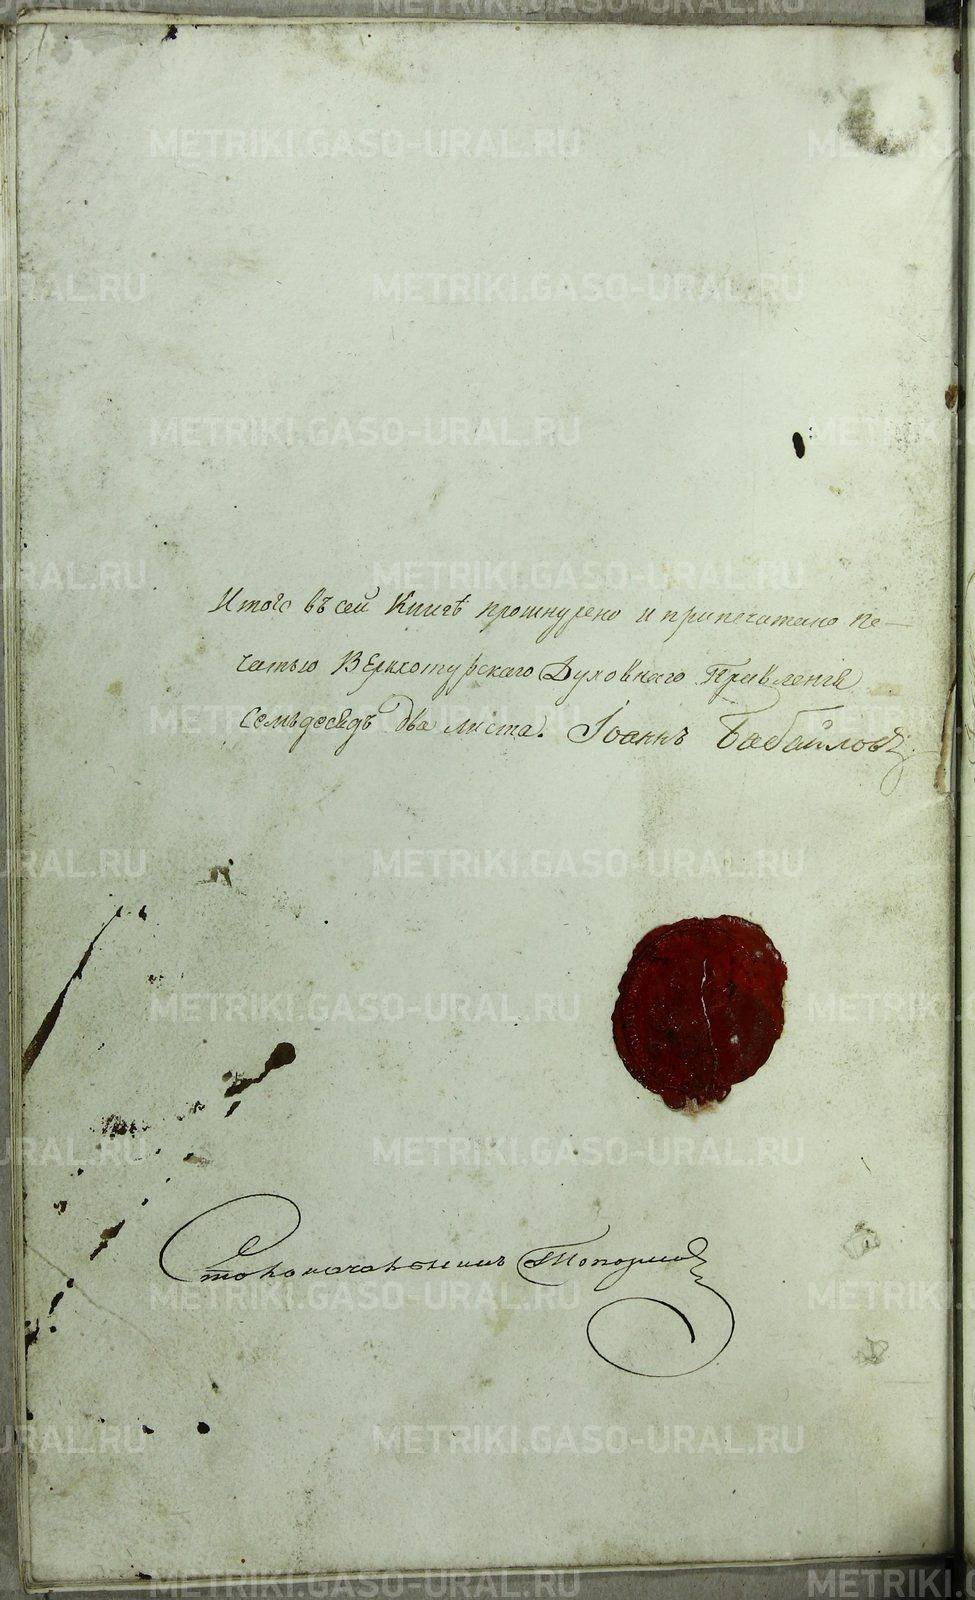 Итого въ сей Книгѣ прошнурено и припечатано пе-
чатью Верхотурскаго Духовнаго Правленія
семьдесядъ два листа. Іоаннъ Бабайловъ
Столоначальникъ Топорков